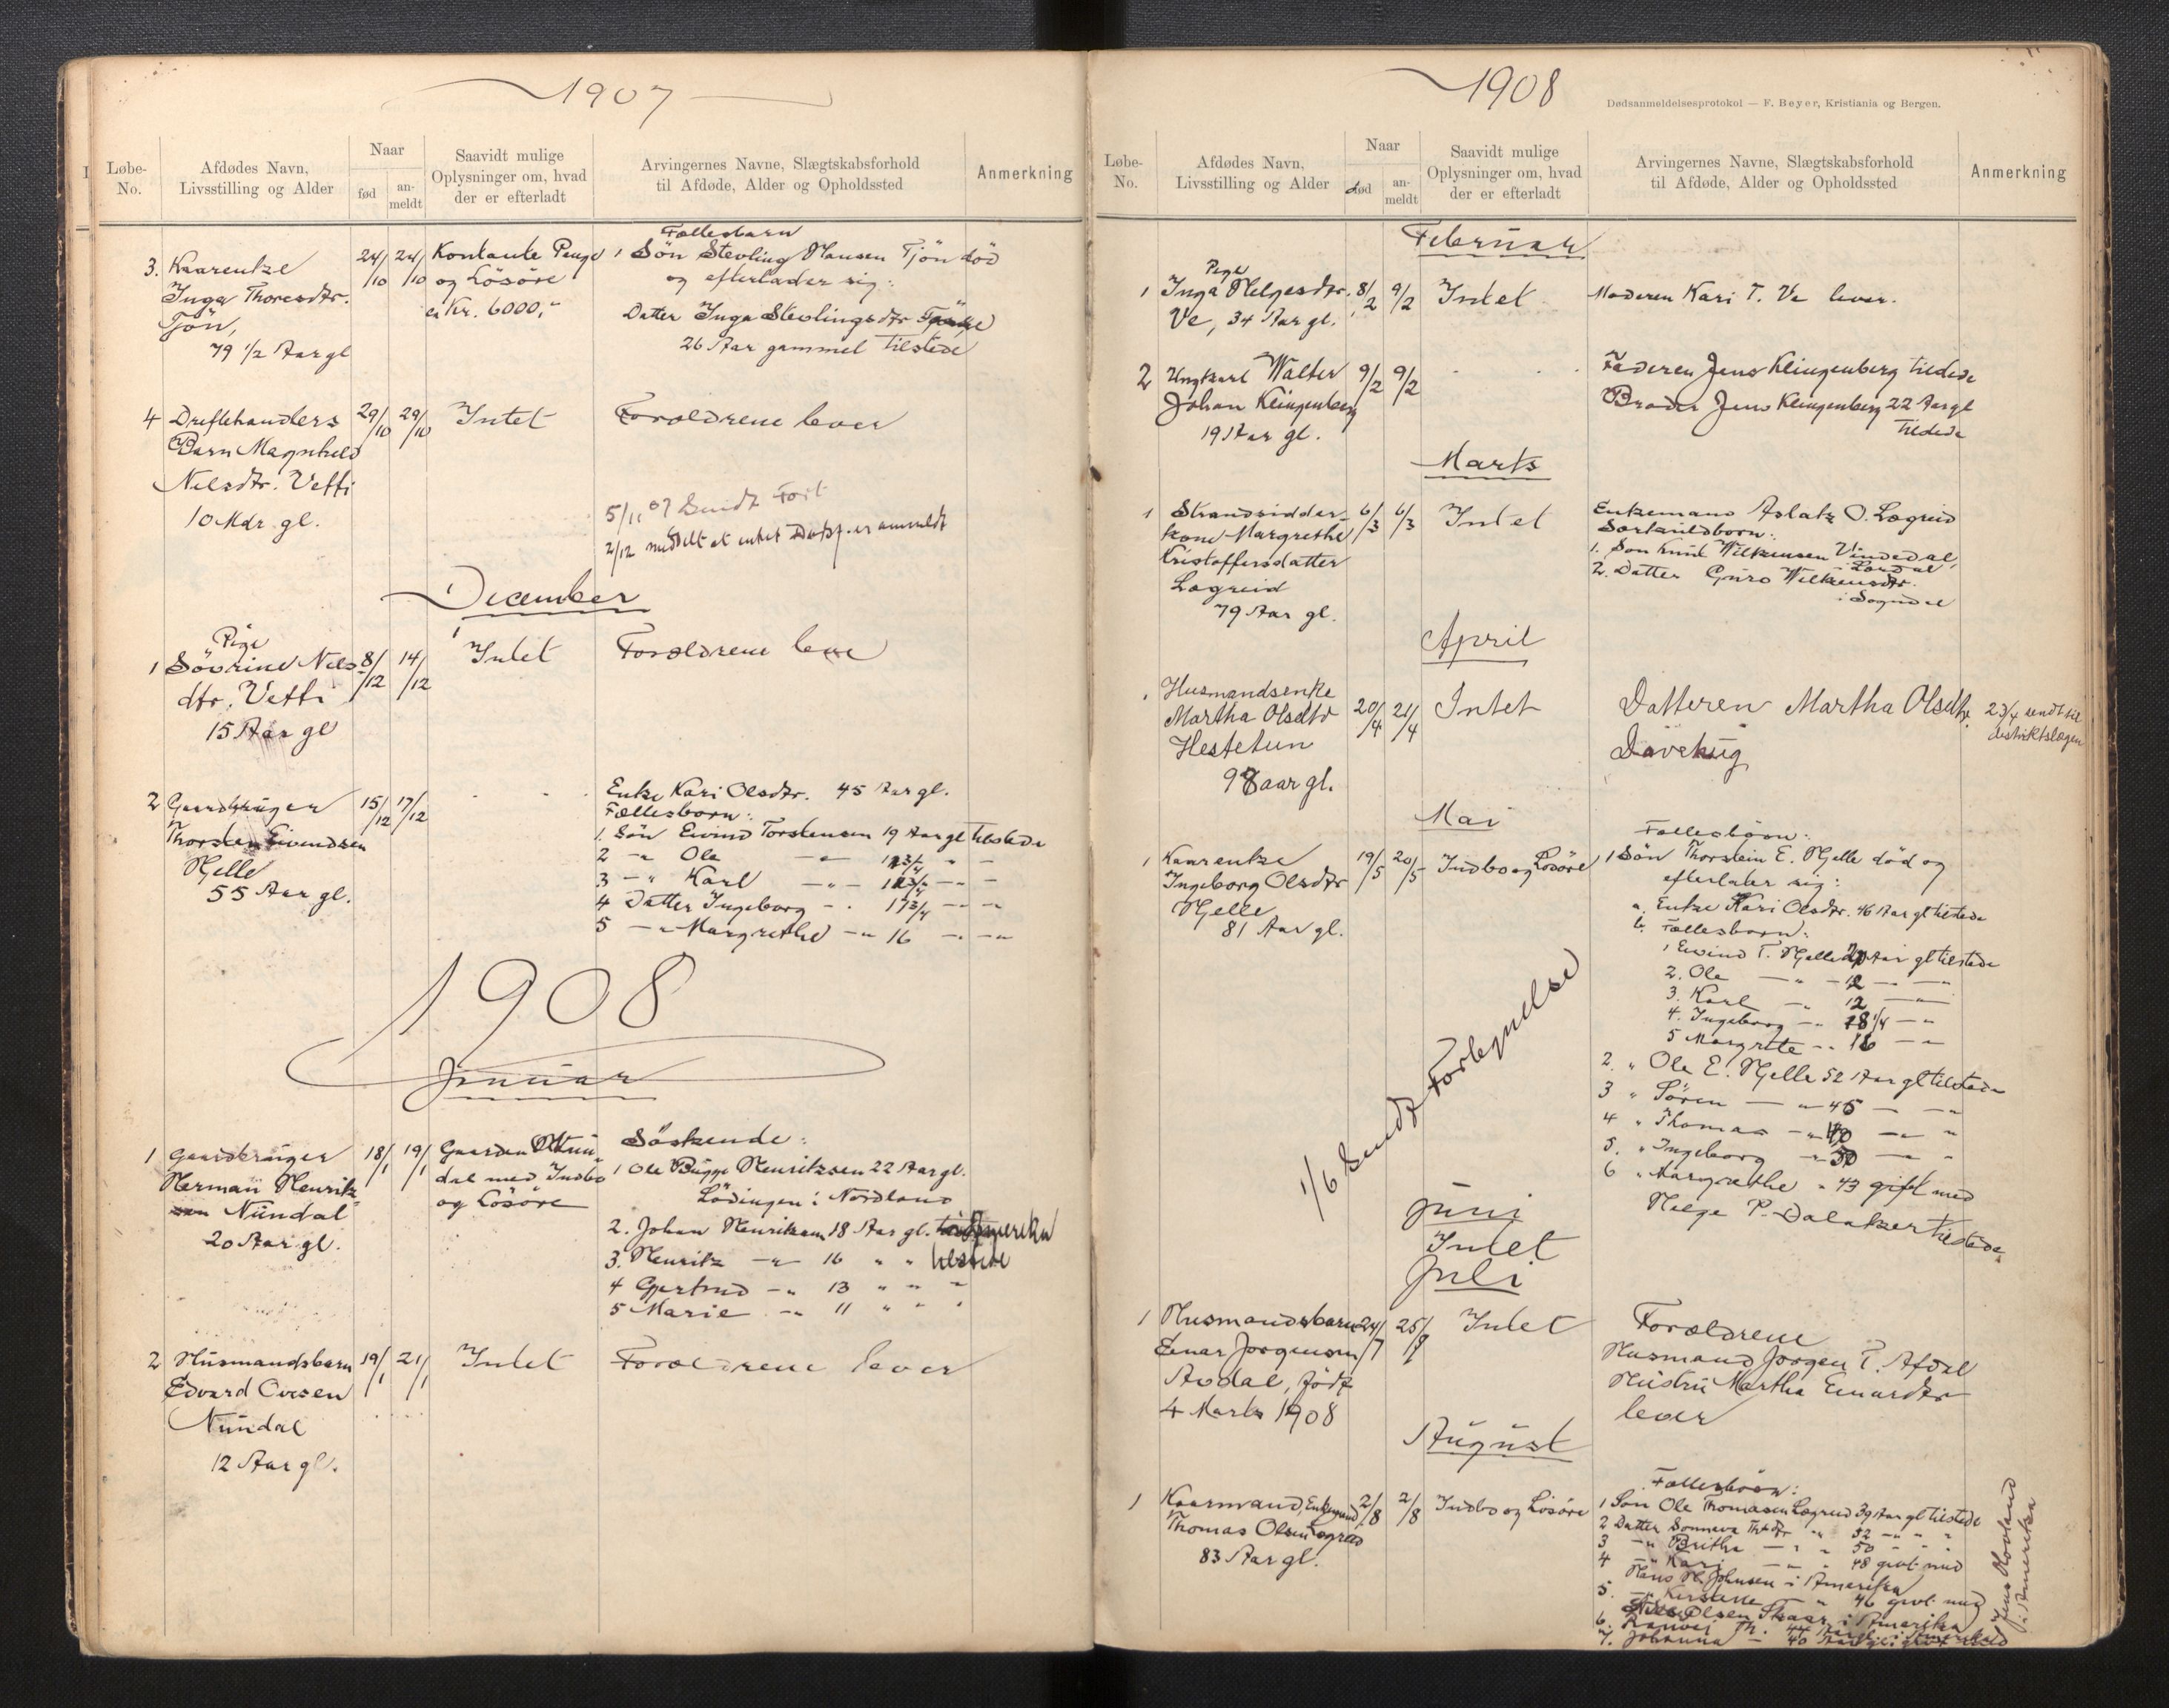 1907
Løbe-No.
Afdødes Navn, Livsstilling og Alder
Naar
fød
an-meldt
Saavidt mulige Oplysninger om, hvad der er efterladt
Arvingernes Navne, Slægtskabsforhold til Afdøde, Alder og Opholdssted
Anmerkning
3. Kaarenke
Inga Thoresdtr.
Tjön,
79 1/2 Aar gl
24/10 24/10
Kontante Penge
og Lösöre
ca Kr. 6000,-
Fællesbarn
1 Sön Stevling Hansen Tjön död
og efterlader sig:
Datter Inga Stevlingsdtr
26 Aar gammel tilstede
4 Driftehandlers
Barn Magnhild
Nilsdtr. Vetti
10 Mdr gl.
29/10 29/10
Intet
Foroldrene lever
5/11 07 Sendt
2/12 meddelt at intet er anmeldt
December
Pige
1 Sövrine Nils-
dtr. Vetti
15 Aar gl
8/12 14/12
Intet
Foroldrene leve
2 Gaardbruger
Thorsten Eivendsen
Hjelle
55 Aar gl.
15/12 17/12
Enke Kari Olsdtr. 45 Aar gl.
Fællesborn:
1. Sön Eivind Torstensen 19 Aar gl tilstede
2 -"- Ole
3 -"- Karl
4 Datter Ingeborg - 17 3/4 - -
5 -"- Margrethe -"- 16 - -
1908
Januar
1 Gaardbruger
Herman Henrik-
sen Nundal
20 Aar gl.
18/1 19/1
Gaarden
dal med Indbo
og Lösöre
Söskende:
1 Ole Bugge Henriksen 22 Aar gl.
Lödingen i Nordland
2. Johan Henriksen 18 Aar gl. Amerika
3. Henrik -"- 16 " " tilstede
4 Gjertrud -"- 13 " " "
5 Marie -"- 11 " " "
2 Husmandsbarn
Edvard Ovesen
Nundal
12 Aar gl.
19/1 21/1
Intet
Foroldrene lever
1908
Dødsanmeldelsesprotokol — F. Beyer, Kristiania og Bergen.
Løbe-No.
Afdødes Navn, Livsstilling og Alder
Naar
død
an-meldt
Saavidt mulige Oplysninger om, hvad der er efterladt
Arvingernes Navne, Slægtskabsforhold til Afdøde, Alder og Opholdssted
Anmerkning
Februar
Pige
1 Inga Helgesdtr.
Ve, 34 Aar gl.
8/2 9/2
Intet
Moderen Kari T. Ve lever.
2 Ungkarl Walter
Johan Klingenberg
19 Aar gl.
9/2 9/2
Faderen Jens Klingenberg tilstede
Broder Jens Klingenberg 22 Aar gl
tilstede
Marts
1 Strandsidder-
kone Margrethe
Kristoffersdatter
Lægreid
79 Aar gl.
6/3 6/3
Intet
Enkemand Aslak O. Lægreid
Særkuldborn:
1. Son Knut Wilkensen Vindedal,
Lærdal
2. Datter Guro Wilkensdtr.
i Sogndal
April
Husmandsenke
Martha Olsdtr
Hestetun
98 aar gl.
20/4 21/4
Intet
Datteren Martha Olsdtr.
23/4 sendt til
distriktslægen
Mai
1 Kaarenke
Ingeborg Olsdtr
Hjelle
81 Aar gl.
19/5 20/5
Indbo og Lösöre
Fællesbörn:
1 Sön Thorstein E. Hjelle död og
efterlater sig:
a. Enke Kari Olsdtr. 46 Aar gl tilstede
b. Fællesborn:
1 Eivind T. Hjelle 20 Aar gl tilstede
2. Ole -"- 12 - -
3. Karl -"- 12 -"-
4. Ingeborg -"- 18 1/4 -"-
5 Margrete -"- 16 -"-
2. " Ole E. Hjelle 52 Aar gl tilstede
3 " Sören -"- 45 - -"-
4 " Thomas -"- 40 - "
5. " Ingeborg -"- 50 - "
6 " Margrethe " 43 gift med
Helge P. Dalaker tilstede
1/6 Sendt Fortegnelse
Juni
Intet
Juli
1 Husmandsbarn
Einar Jorgensen
Avdal, født
4 Marts 1908
24/7 25/7
Intet
Foroldrene
Husmand Jorgen T. Afdal
Hustru Martha Einarsdtr
lever
August
1 Kaarmand, Enkemand
Thomas Olsen Lægreid
83 Aar gl.
2/8 2/8
Indbo og Lösöre
Fællesbörn:
1 Son Ole Thomasen Lægreid 39 Aar gl tilstede
2 Datter Sonneva Thdtr " 52 - " "
3 -"- Britha - " 50 - " "
4 -"- Kari - " 48 givt med
Hans H. Johnsen i Amerika
5. -"- " 46 givt med
Nils Olsen Skaar i Amerika
6. Th. 44 Aar gl. i Amerika
7. Johanna - 40 Aar gl. givt med
Jens Hovland
i Amerika